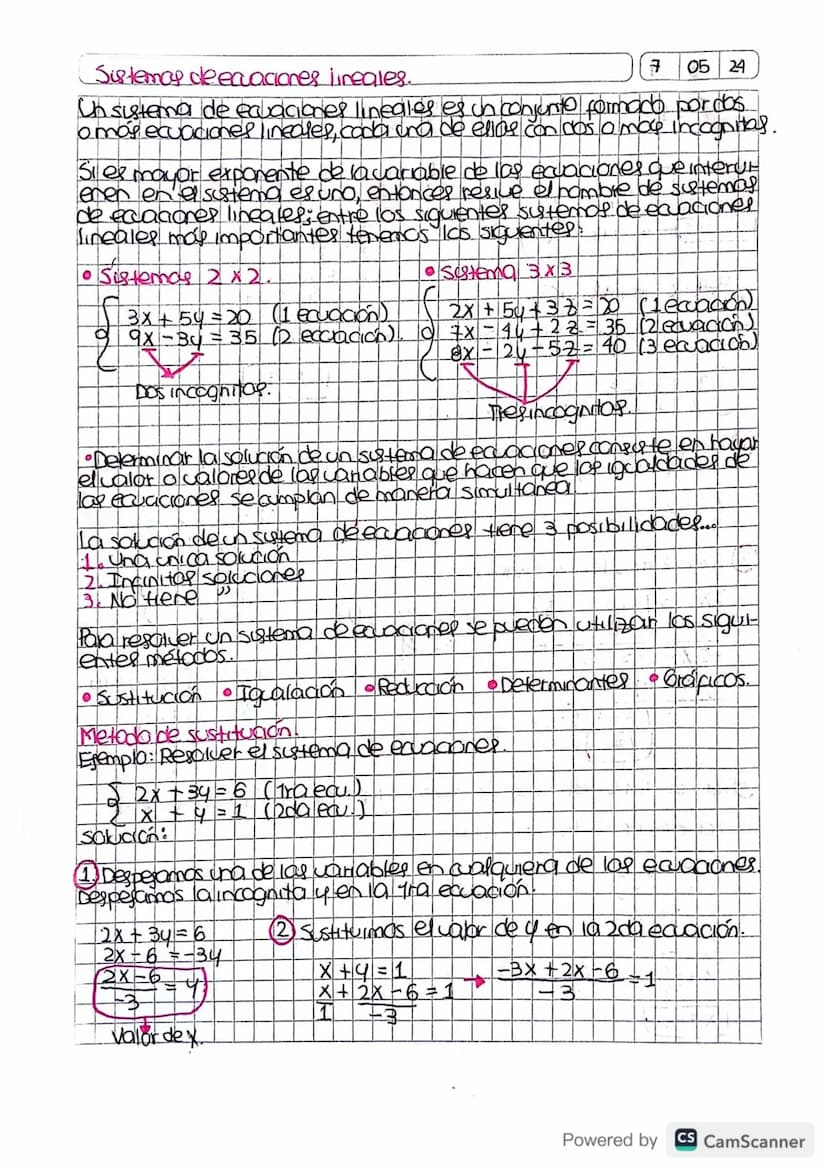 Sistemas de ecuaciones lineales.
7 05 24
Un sistema de ecuaciones lineales es un conjunto formado por dos
o más ecuaciones lineales, cada una de ellas con dos o mas incognitas.
Si es mayor exponente de la variable de las ecuaciones que intervi-
enen en el sistema es uno, entonces resive el nombre de sistemas
de ecuaciones lineales; entre los siguientes sistemas de ecuaciones
lineales más importantes tenemos los siguientes:
• Sistemas 2 x 2.
• Sistema 3 x 3
3x + 5y = 20 (1 ecuación)
9x - 3y = 35 (2 eccuación).
Dos incognitas.
2x + 5y + 3z = 20 (1 ecuación)
7x - 4y + 2z = 35 (2 ecuación)
8x - 2y - 5z = 40 (3 ecuación)
Tres incognitas.
• Determinar la solución de un sistema de ecuaciones consiste en hayar
el valor o valores de las variables que hacen que las igualdades de
las ecuaciones se cumplan de manera simultanea
La solución de un sistema de ecuaciones tiene 3 posibilidades...
1. Una única solución
2. Infinitas soluciones
3. No tiene "
Para resolver un sistema de ecuaciones se pueden utilizar los sigui-
entes métodos.
• Sustitución • Igualación • Reducción • Determinantes • Gráficos.
Metodo de sustitución.
Ejemplo: Resolver el sistema de ecuaciones.
2x + 3y = 6 (1ra ecu.)
x + y = 1 (2da ecu.)
Solución:
1. Despejamos una de las variables en cualquiera de las ecuaciones.
Despejamos la incognita y en la 1ra ecuación.
2x + 3y = 6
2x - 6 = -3y
2x - 6
-3
= y
Valor de y.
2 Sustituimos el valor de y en la 2da ecuación.
x + y = 1
x + 2x - 6 = 1
1 -3
-3x + 2x - 6 = 1
-3
Powered by CS CamScanner